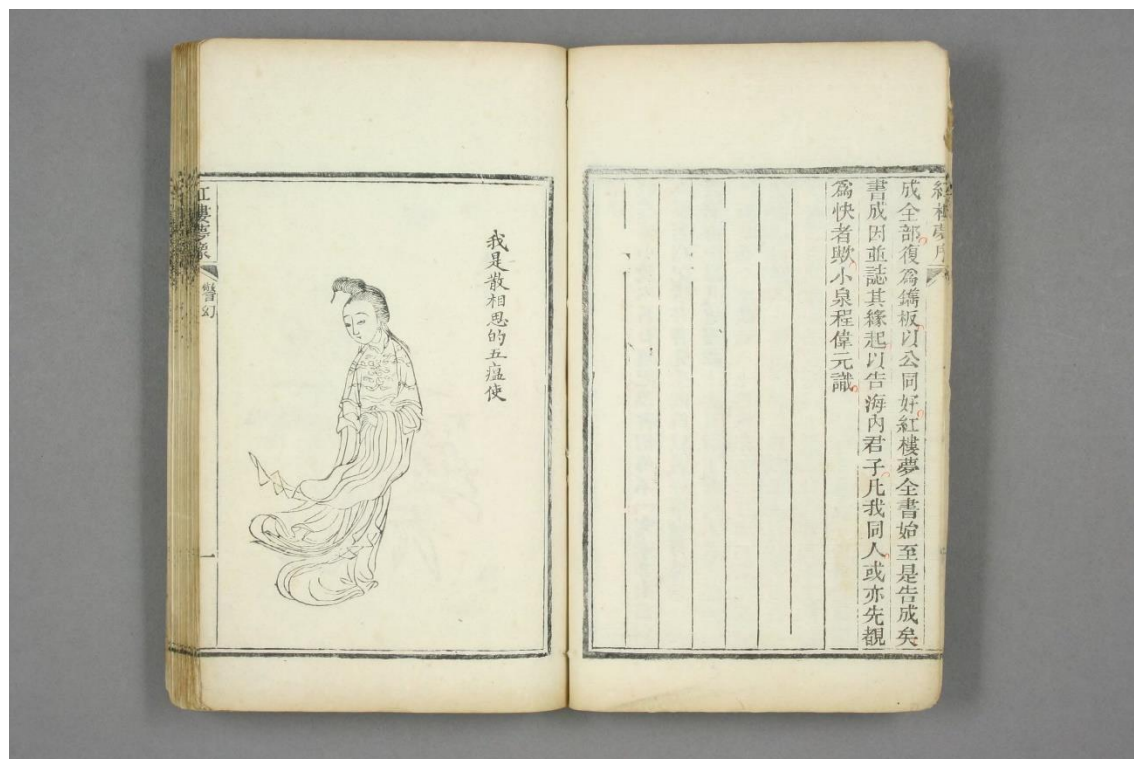 紅樓夢序
成全部復爲鐫板以公同好紅樓夢全書始至是告成矣
書成因並誌其緣起以告海內君子凡我同人或亦先覩
爲快者歟小泉程偉元識
我是散相思的五瘟使
紅樓夢象
警幻
一